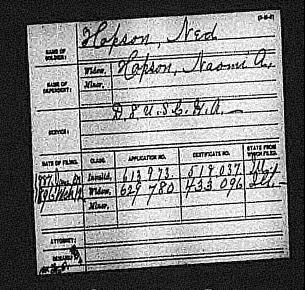 NAME OF SOLDIER: Hopson, Ned
NAME OF DEPENDENT: Widow, Hopson, Naomi A.
Minor,
SERVICE: D 8 U.S.C.H.A.
DATE OF FILING. CLASS. APPLICATION NO. CERTIFICATE NO. STATE FROM WHICH FILED.
1887 Invalid, 613973 519037
1896 Widow, 629780 433096
Minor,
ATTORNEY:
REMARKS: